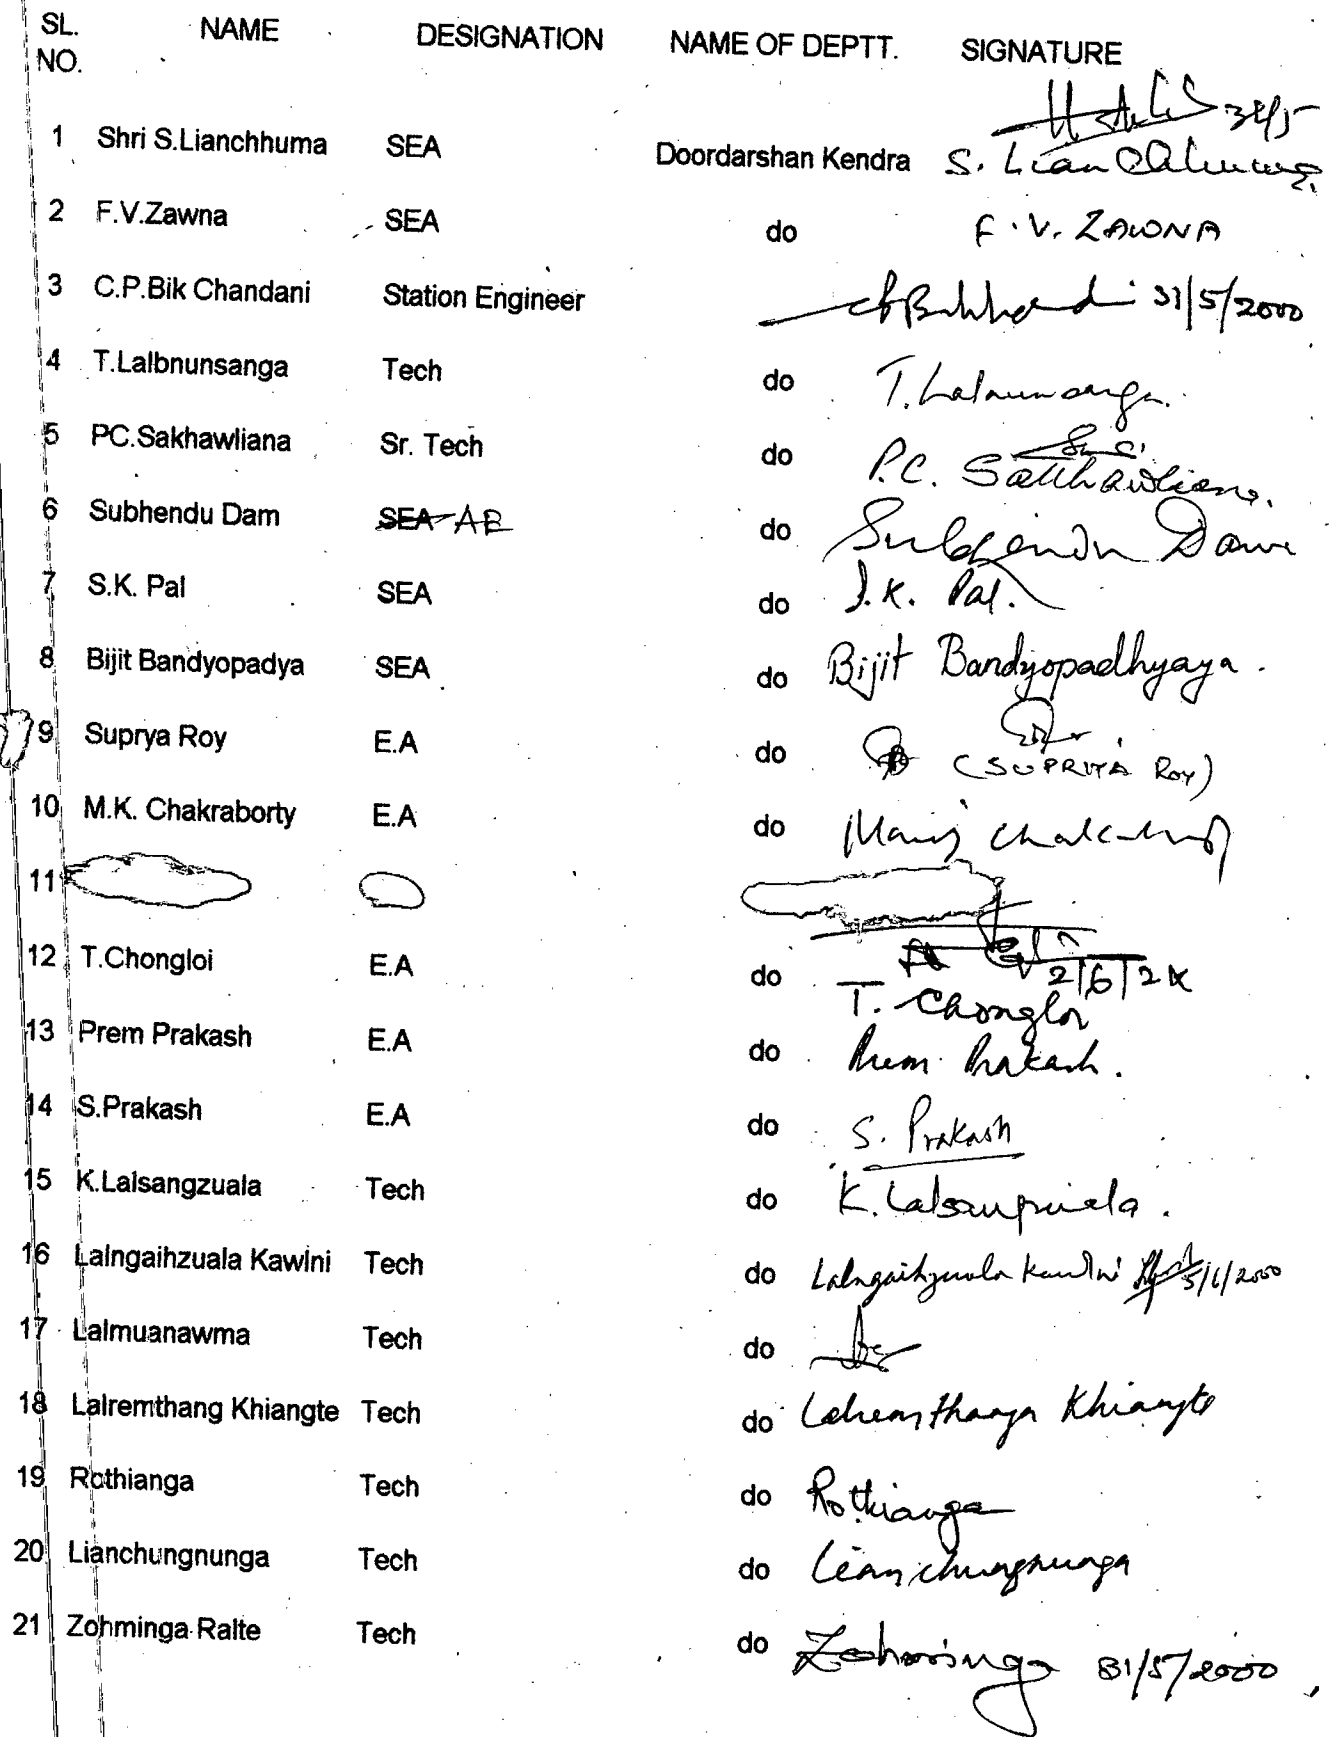 SL. NO. NAME DESIGNATION NAME OF DEPTT. SIGNATURE
1 Shri S.Lianchhuma SEA Doordarshan Kendra S. Lianchhuma
2 F.V.Zawna SEA do F.V. ZAWNA
3 C.P.Bik Chandani Station Engineer 31/5/2000
4 T.Lalbnunsanga Tech do T. Lalnunsanga.
5 PC.Sakhawliana Sr. Tech do P.C. Sakhawliana.
6 Subhendu Dam SEA AE do Subhendu Dam
7 S.K. Pal SEA do S.K. Pal.
8 Bijit Bandyopadya SEA do Bijit Bandyopadhyaya.
9 Suprya Roy E.A do (SUPRIYA ROY)
10 M.K. Chakraborty E.A do
11
12 T.Chongloi E.A do 2/6/2K
T. Chongloi
13 Prem Prakash E.A do Prem Prakash.
14 S.Prakash E.A do S. Prakash
15 K.Lalsangzuala Tech do K. Lalsangzuala.
16 Lalngaihzuala Kawlni Tech do Lalngaihzuala Kawlni 5/6/2000
17 Lalmuanawma Tech do
18 Lalremthang Khiangte Tech do Lalremthanga Khiangte
19 Rothianga Tech do Rothianga
20 Lianchungnunga Tech do Lianchungnunga
21 Zohminga Ralte Tech do Zohminga 31/5/2000